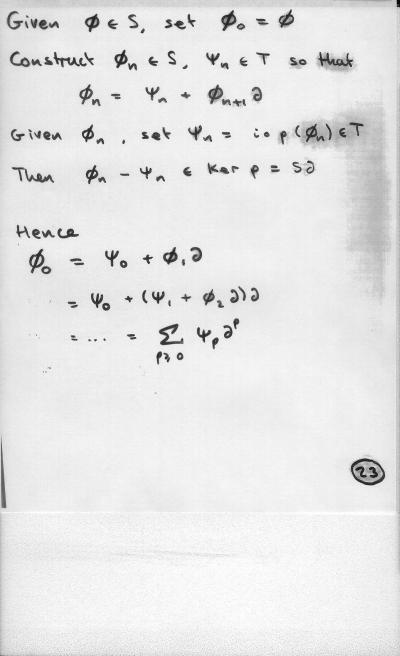 Given ϕ ∈ S, set ϕ₀ = ϕ
Construct ϕₙ ∈ S, ψₙ ∈ T so that
ϕₙ = ψₙ + ϕₙ₊₁ ∂
Given ϕₙ, set ψₙ = i∘p(ϕₙ) ∈ T
Then ϕₙ - ψₙ ∈ ker p = S∂
Hence
ϕ₀ = ψ₀ + ϕ₁∂
= ψ₀ + (ψ₁ + ϕ₂∂)∂
= ... = ∑ ψₚ∂ᵖ
p≥0
23